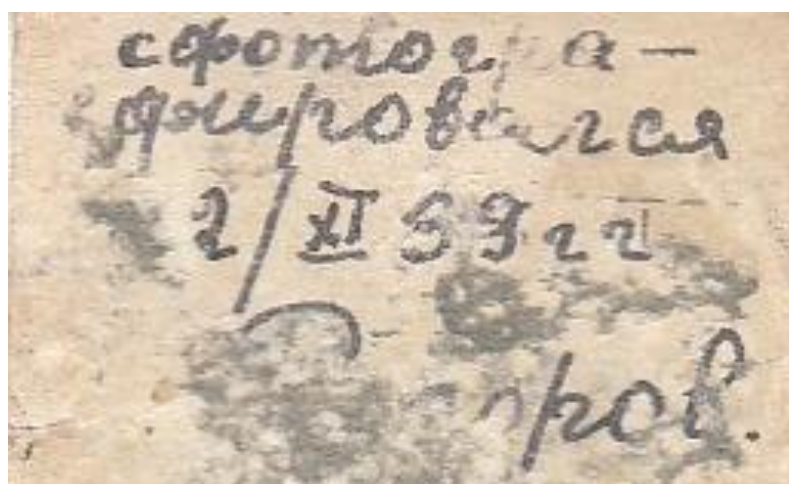 сфотогра-
фировался
2/XI 39 гг